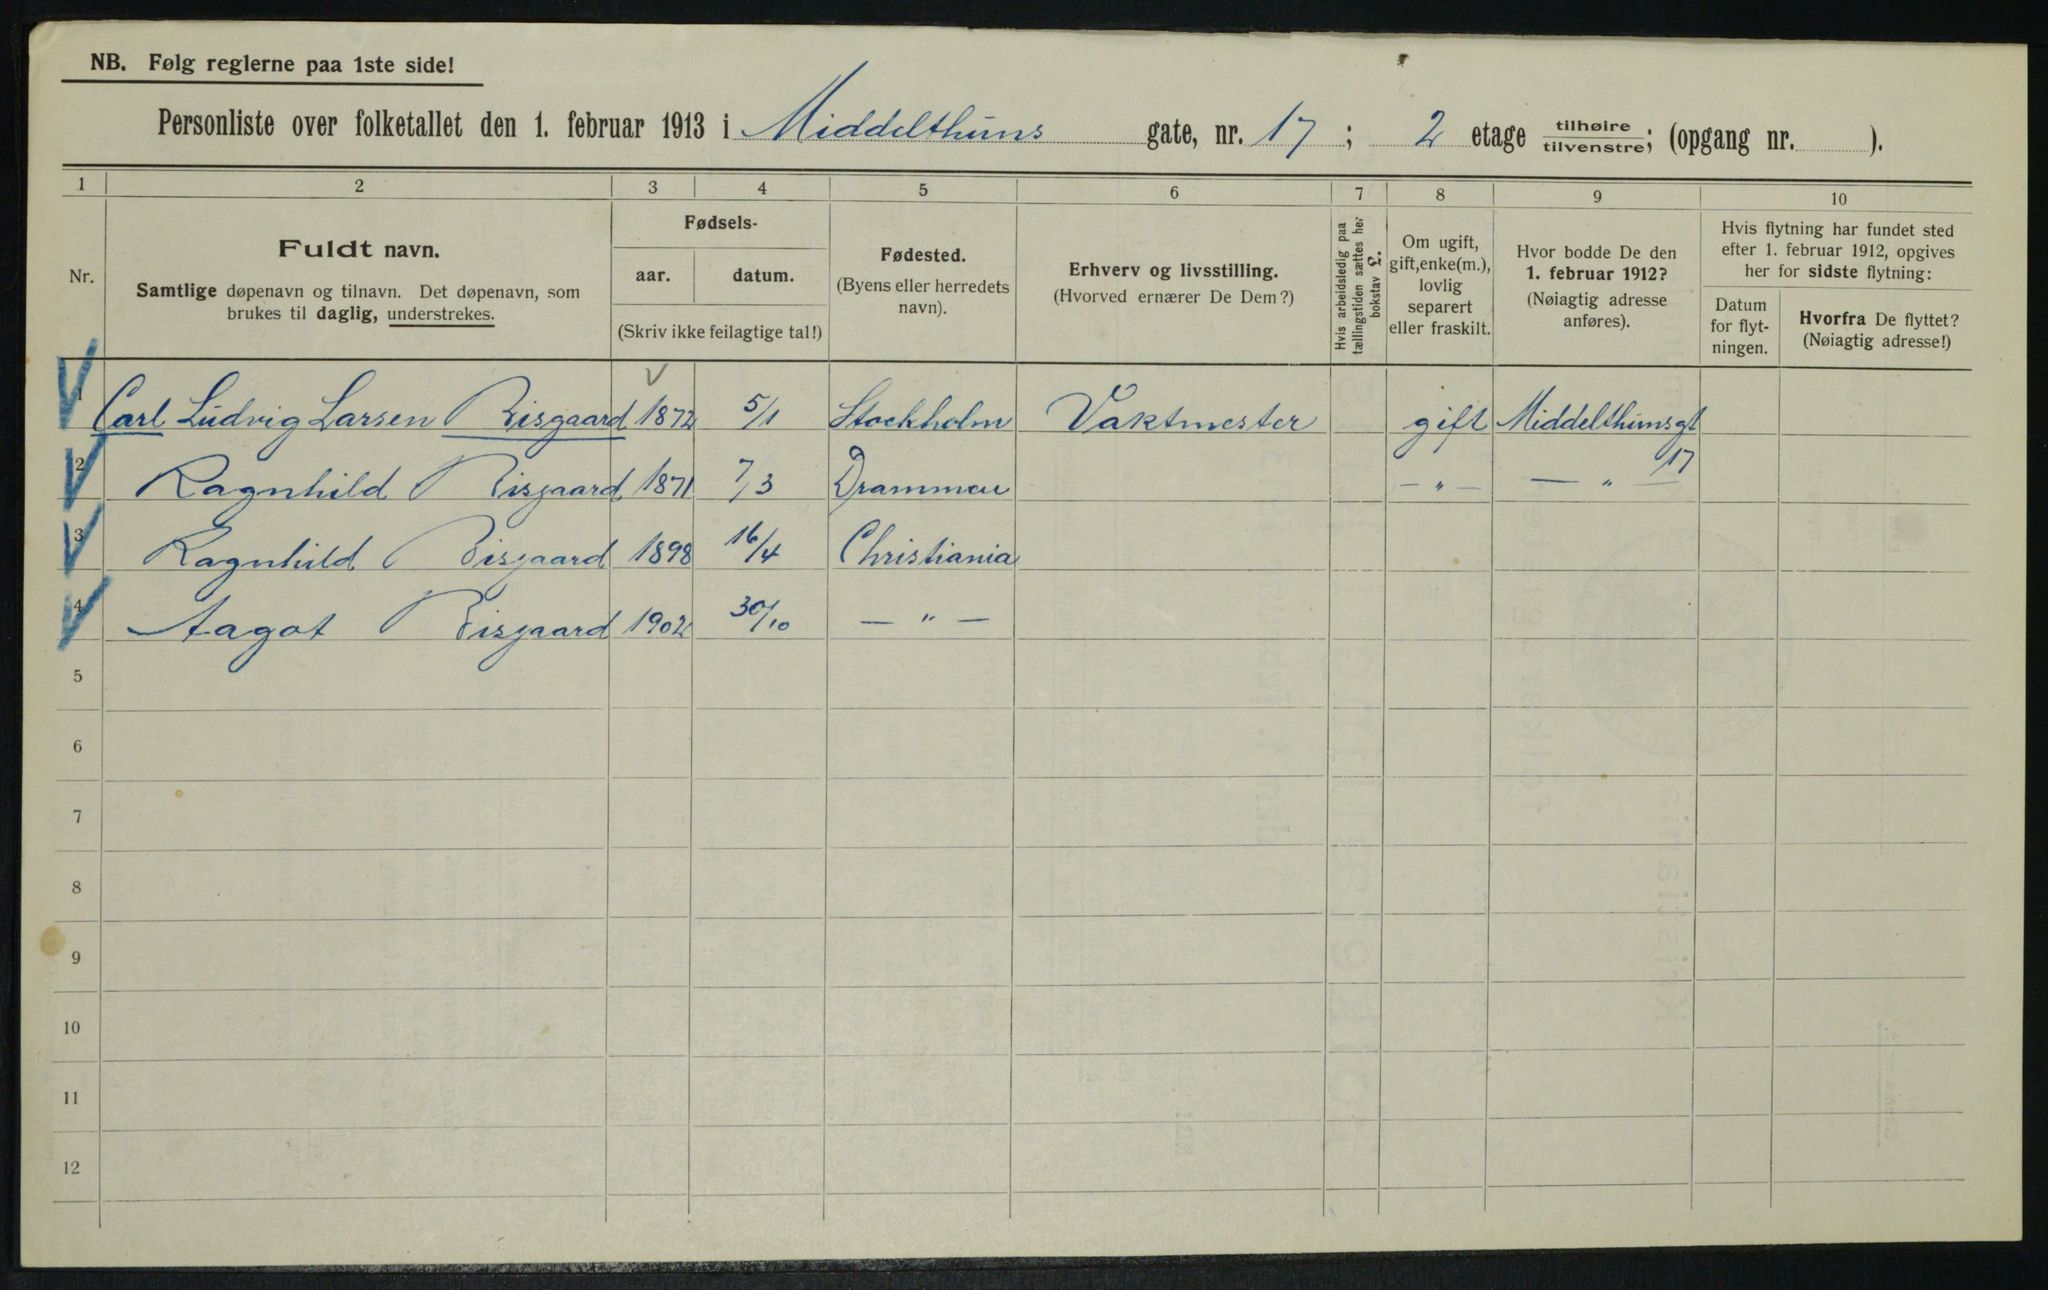 NB. Følg reglerne paa 1ste side!
Personliste over folketallet den 1. februar 1913 i Middelthuns gate, nr. 17; 2 etage tilhøire tilvenstre; (opgang nr. ).
1 2 3 4 5 6 7 8 9 10
Nr.
Fuldt navn.
Samtlige døpenavn og tilnavn. Det døpenavn, som
brukes til daglig, understrekes.
Fødsels-
aar. datum.
(Skriv ikke feilagtige tal!)
Fødested.
(Byens eller herredets
navn).
Erhverv og livsstilling.
(Hvorved ernærer De Dem?)
Hvis arbeidsledig paa
tællingstiden sættes her
bokstav L.
Om ugift,
gift, enke(m.),
lovlig
separert
eller fraskilt.
Hvor bodde De den
1. februar 1912?
(Nøiagtig adresse
anføres).
Hvis flytning har fundet sted
efter 1. februar 1912, opgives
her for sidste flytning:
Datum
for flyt-
ningen.
Hvorfra De flyttet?
(Nøiagtig adresse!)
1 Carl Ludvig Larsen Bisgaard 1872 5/1 Stockholm Vaktmester gift Middelthunsgt 17
2 Ragnhild Bisgaard 1871 7/3 Drammen — " — — " —
3 Ragnhild Bisgaard 1898 16/4 Christiania
4 Aagot Bisgaard 1902 30/10 — " —
5
6
7
8
9
10
11
12